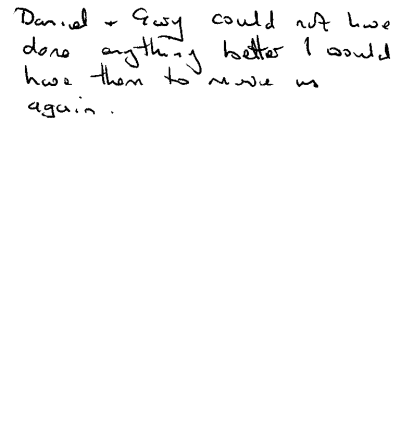 Daniel + Gary could not have
done anything better I would
have them to move us
again.